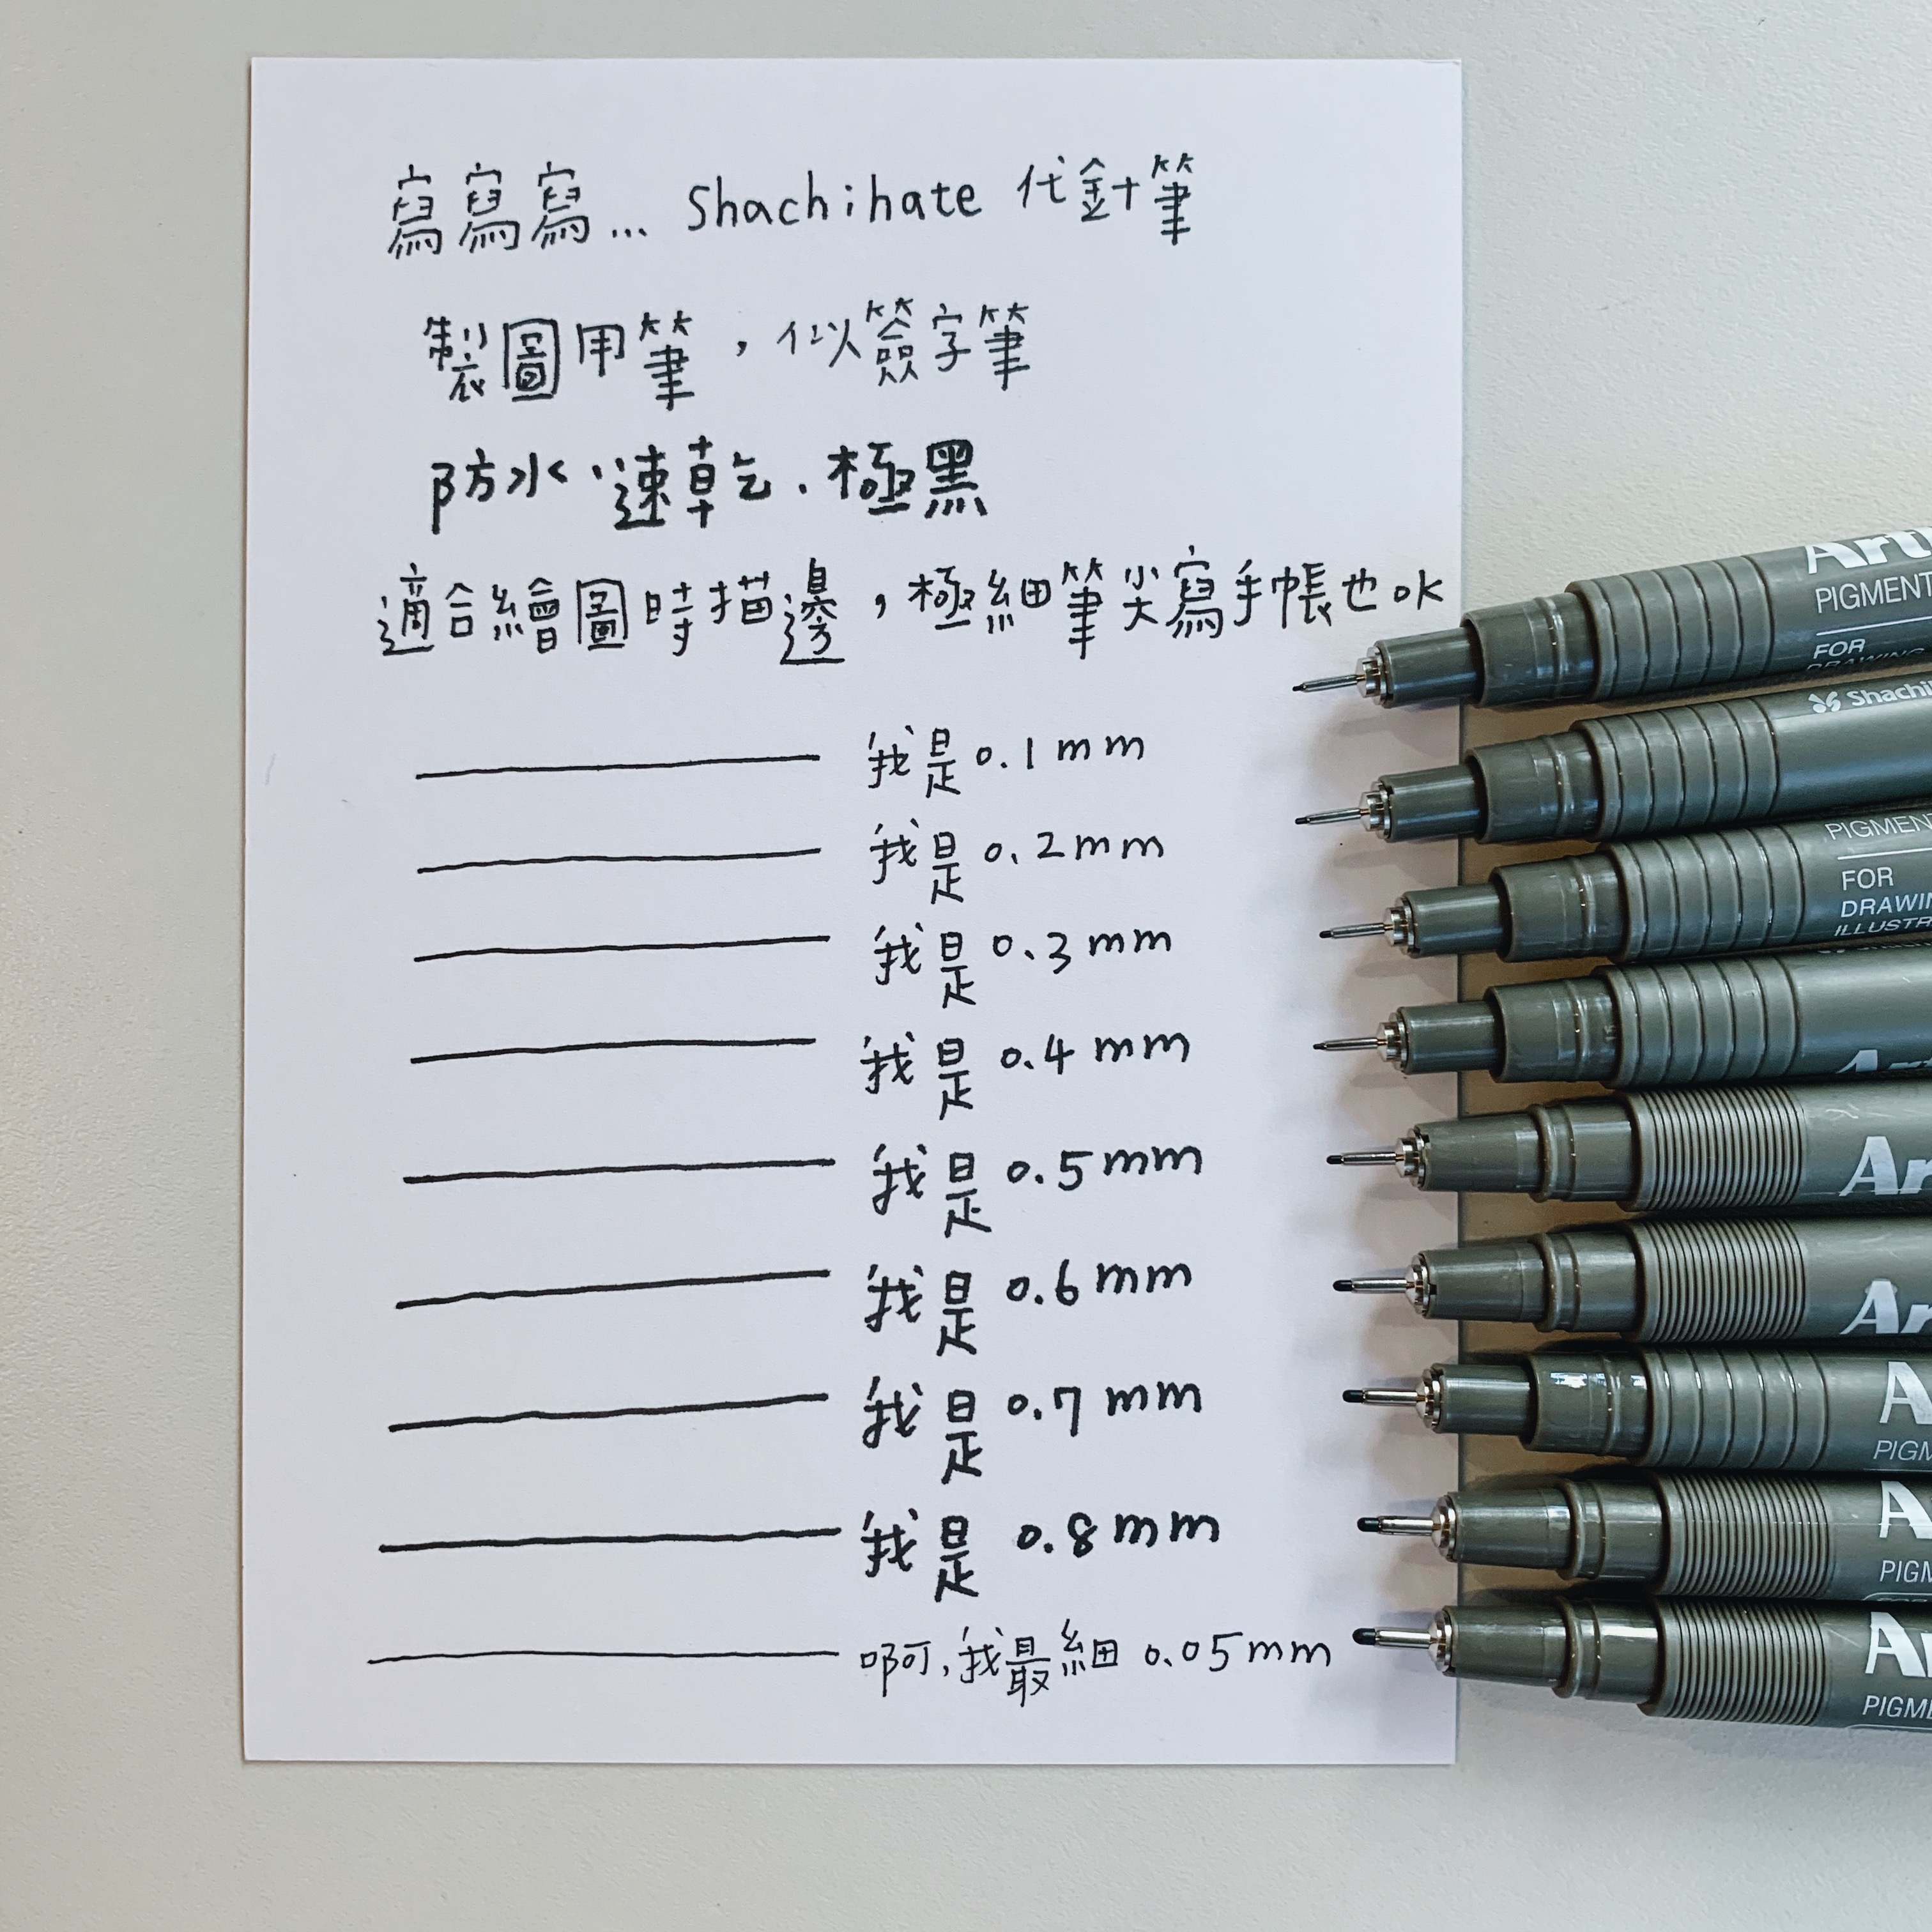 寫寫寫... Shachihate 代針筆
製圖用筆，似簽字筆
防水、速乾、極黑
適合繪圖時描邊，極細筆尖寫手帳也ok
我是0.1mm
我是0.2mm
我是0.3mm
我是0.4mm
我是0.5mm
我是0.6mm
我是0.7mm
我是0.8mm
啊，我最細 0.05mm
PIGMENT
FOR
DRAWING
FOR